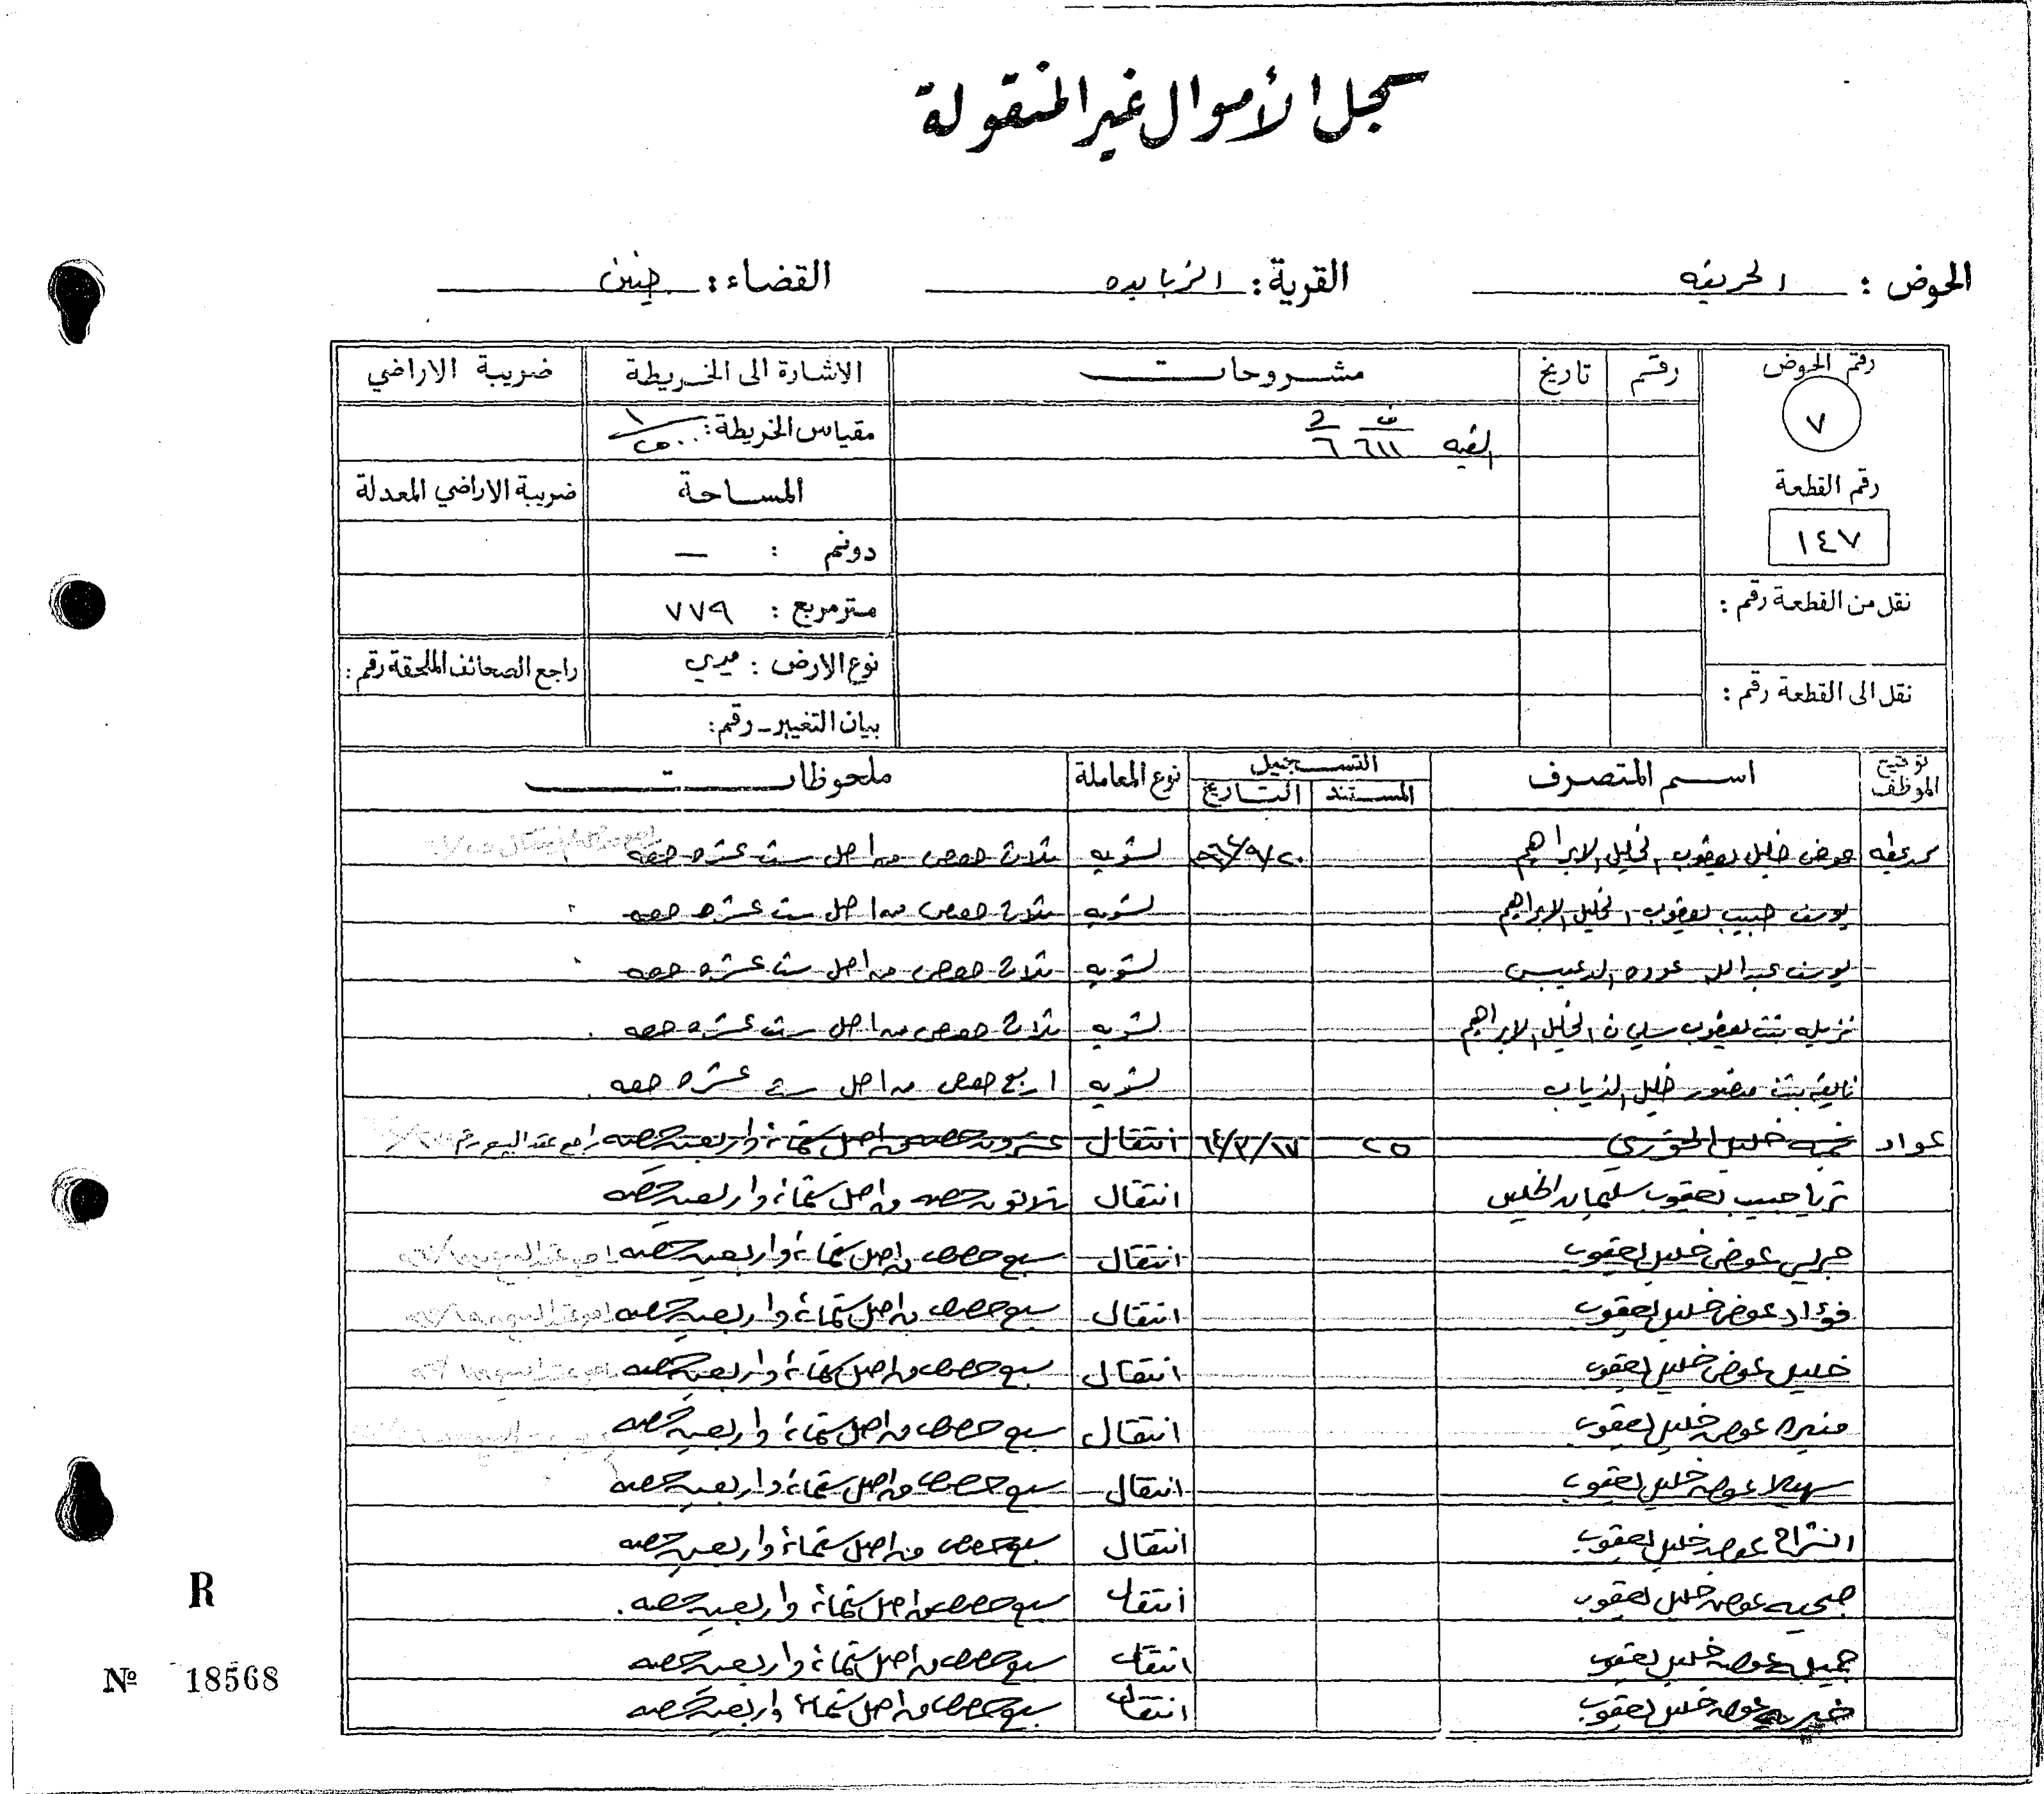 سجل الأموال غير المنقولة
الحوض : الحريقه القرية : الزبابده القضاء : جنين
رقم الحوض رقم تاريخ مشروحات الاشارة الى الخريطة ضريبة الاراضي
٧
مقياس الخريطة :
رقم القطعة المساحة ضريبة الاراضي المعدلة
١٤٧
دونم : —
نقل من القطعة رقم : مترمربع : ٧٧٩
نوع الارض : ميري راجع الصحائف الملحقة رقم :
نقل الى القطعة رقم :
بيان التغيير - رقم :
توقيع الموظف اسم المتصرف التسجيل نوع المعاملة ملحوظات
المستند التاريخ
عوض خليل يعقوب الخليل الابراهيم ٩٦٤/٩/٢٠ تسويه ثلاث حصص من اصل ست عشره حصه
يوسف حبيب يعقوب الخليل الابراهيم تسويه ثلاث حصص من اصل ست عشره حصه
يوسف عبدالله عوده الدعيبس تسويه ثلاث حصص من اصل ست عشره حصه
نزيله بنت يعقوب سليمان الخليل الابراهيم تسويه ثلاث حصص من اصل ست عشره حصه
نايفه بنت منصور خليل الذياب تسويه اربع حصص من اصل ست عشره حصه
عواد نجمه خليل الخوري ٢٥ ٦٤/٣/١٧ انتقال عشرون حصه من اصل ستمائة واربعين حصه راجع عقد البيع رقم
ثريا حبيب يعقوب سليمان الخليل انتقال ثلاثون حصه من اصل ستمائة واربعين حصه
جريس عوض خليل يعقوب انتقال سبع حصص من اصل ستمائة واربعين حصه
فؤاد عوض خليل يعقوب انتقال سبع حصص من اصل ستمائة واربعين حصه
خليل عوض خليل يعقوب انتقال سبع حصص من اصل ستمائة واربعين حصه
منيره عوض خليل يعقوب انتقال سبع حصص من اصل ستمائة واربعين حصه
سهيلا عوض خليل يعقوب انتقال سبع حصص من اصل ستمائة واربعين حصه
انشراح عوض خليل يعقوب انتقال سبع حصص من اصل ستمائة واربعين حصه
صبحيه عوض خليل يعقوب انتقال سبع حصص من اصل ستمائة واربعين حصه
جميله عوض خليل يعقوب انتقال سبع حصص من اصل ستمائة واربعين حصه
خيريه عوض خليل يعقوب انتقال سبع حصص من اصل ستمائة واربعين حصه
R
№ 18568